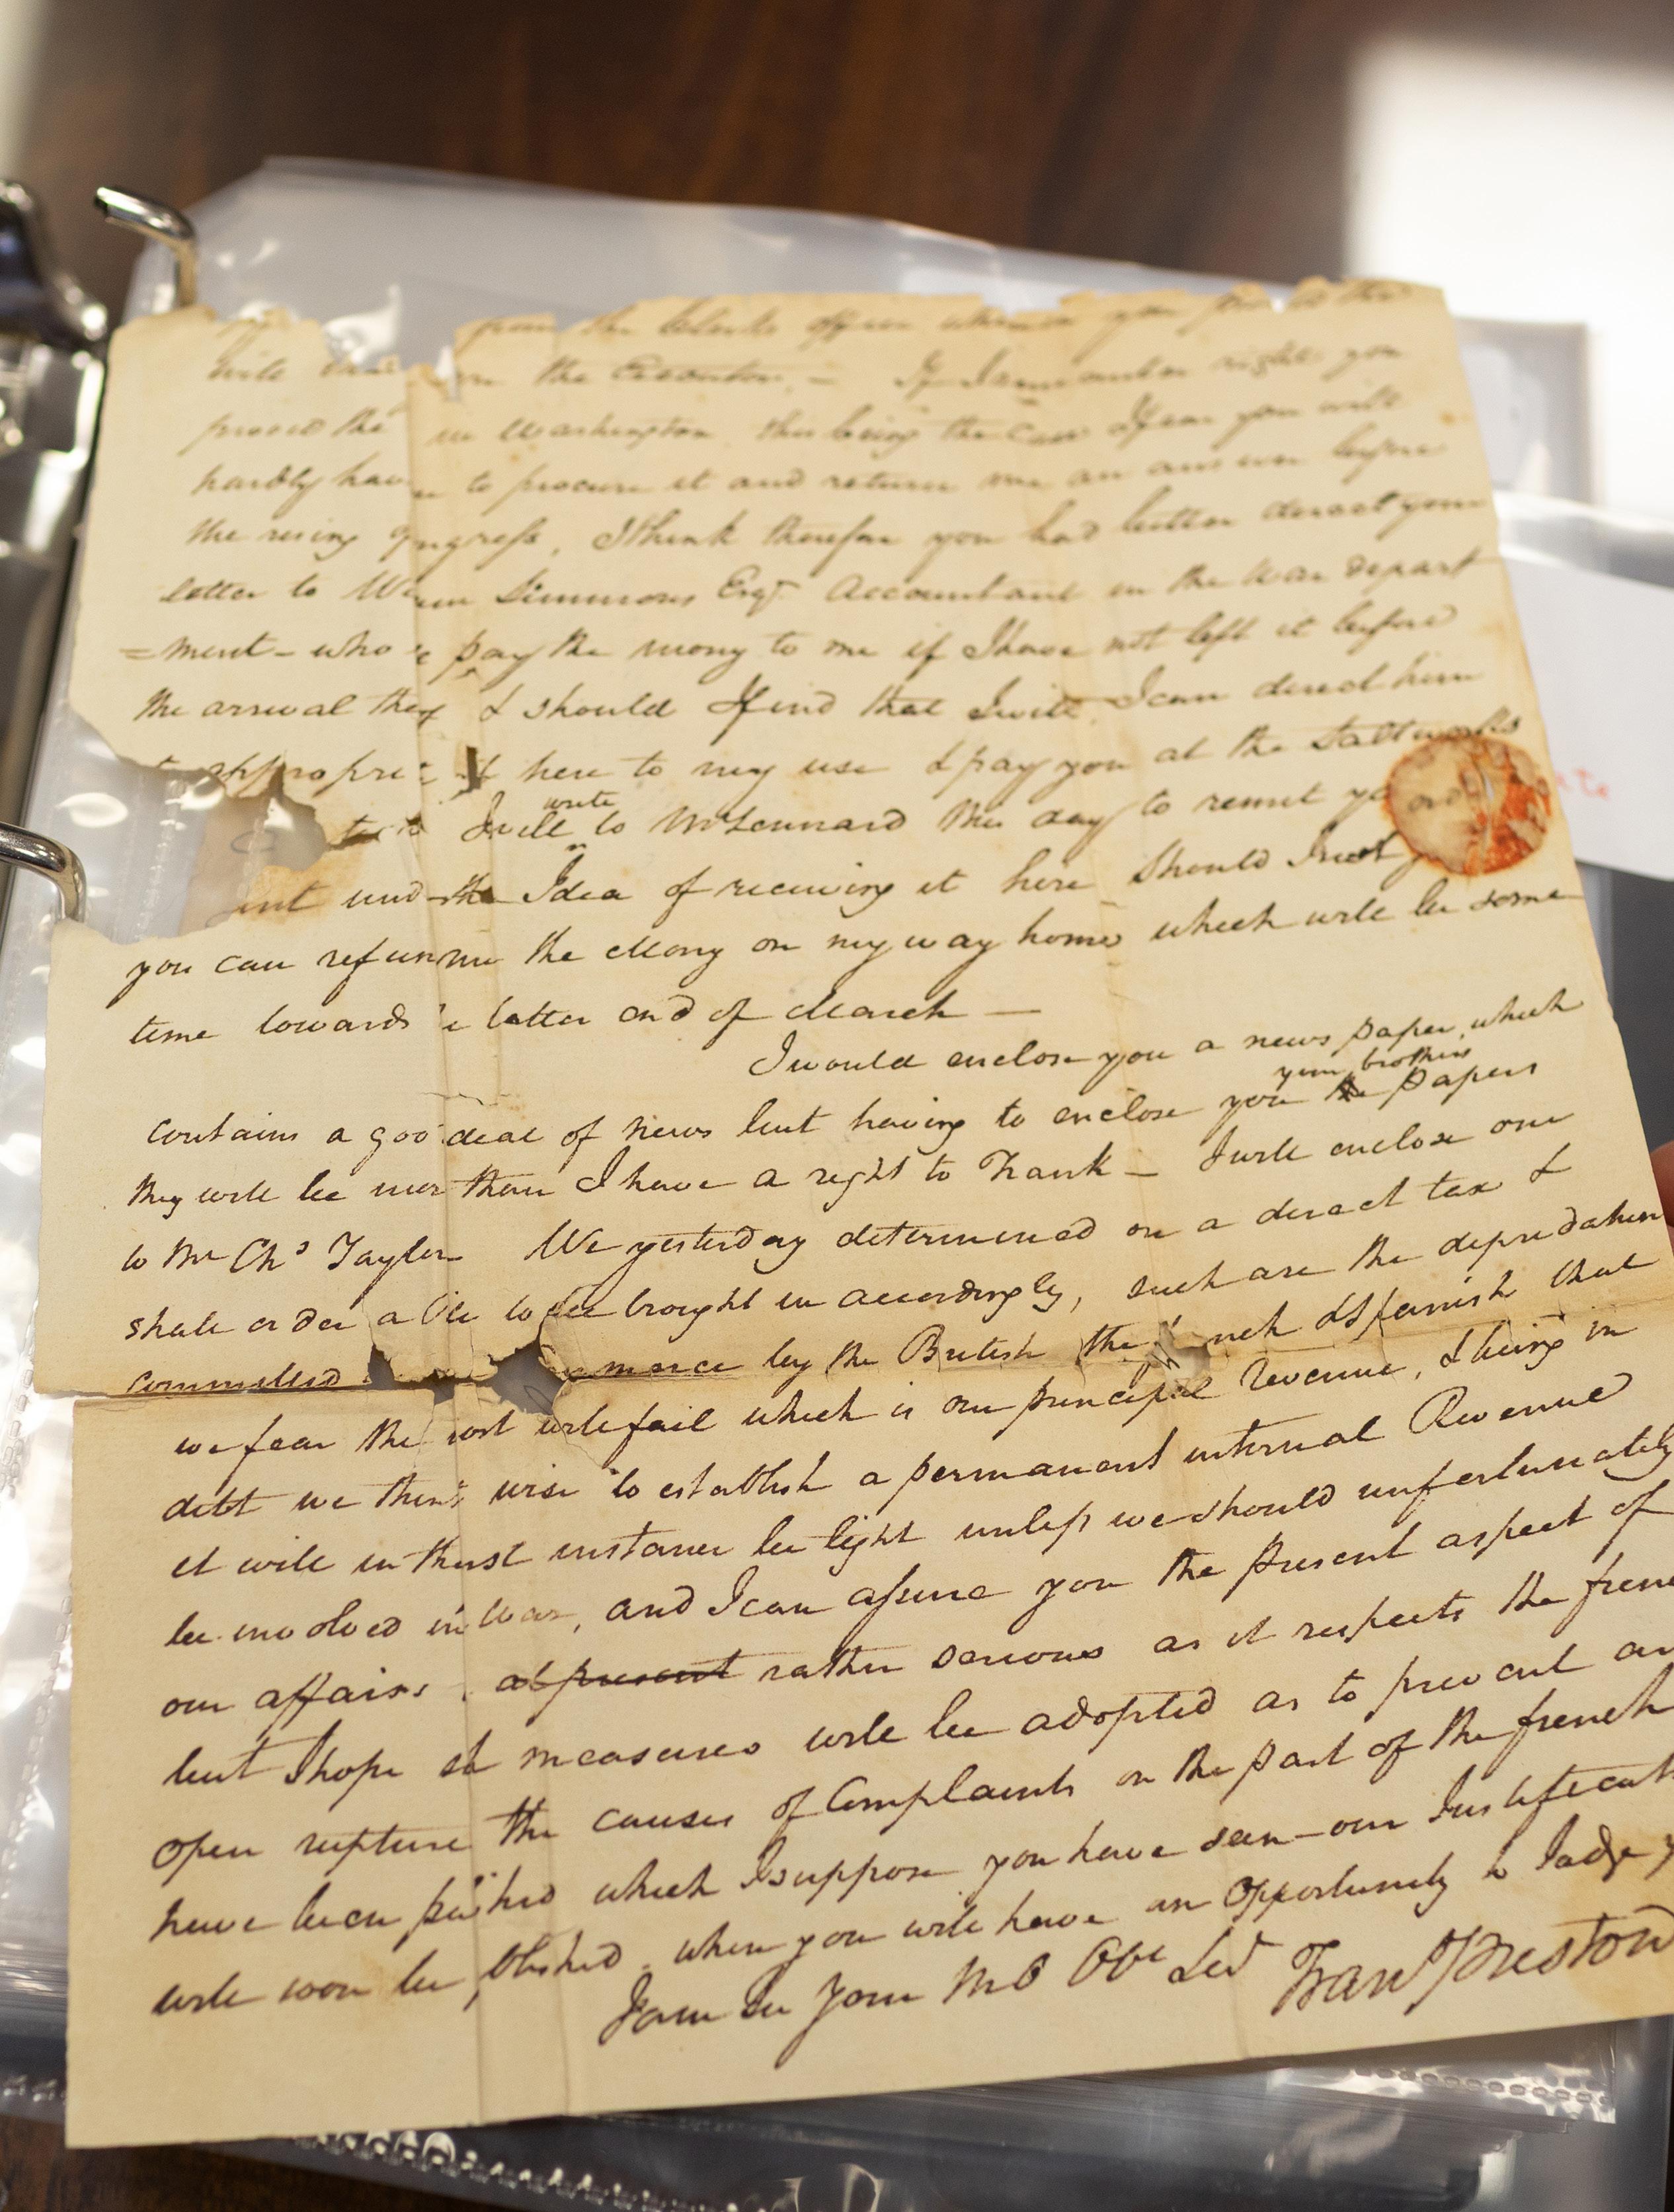 from the Clerks office wherein you
will the Executor. – If I remember right you
proved the in Washington this being the Case I fear you will
hardly hav to procure it and return me an answer before
the rising ongress, I think therefore you had better direct your
letter to W m Simmons Esqr Accountant in the War depart
=ment – who pay the mony to me if I have not left it before
the arrival they & should I find that I will I can direct him
appropri it here to my use & pay you at the Saltworks
I will write to Mr Lennard this day to remit yo
ent und the Idea of receiving it here Should I not
you can refun me the Mony on my way home which will be some
time towards e latter end of March —
I would enclose you a news paper, which
contains a goo deal of news but having to enclose you your brothers papers
they will be mor than I have a right to Frank – I will enclose one
to Mr Chs Taylor We yesterday determined on a direct tax &
shall order a Bill to be brought in accordingly, such are the depredation
committed mmerce by the British the nch & Spanish that
we fear the ost will fail which is our principal Revenue, & being in
debt we thin wise to establish a permanent internal Revenue
it will in th rst instance be light unless we should unfortunately
be involved in War, and I can assure you the present aspect of
our affairs at present rather serious as it respects the fren
but I hope measures will be adopted as to prevent an
open rupture the causes of Complaints on the part of the french
have been pu hed which I suppose you have seen – our Justificat
will soon be blished when you will have an Opportunity to Judge
I am Sir Your Mo Obt Sert Frans Preston